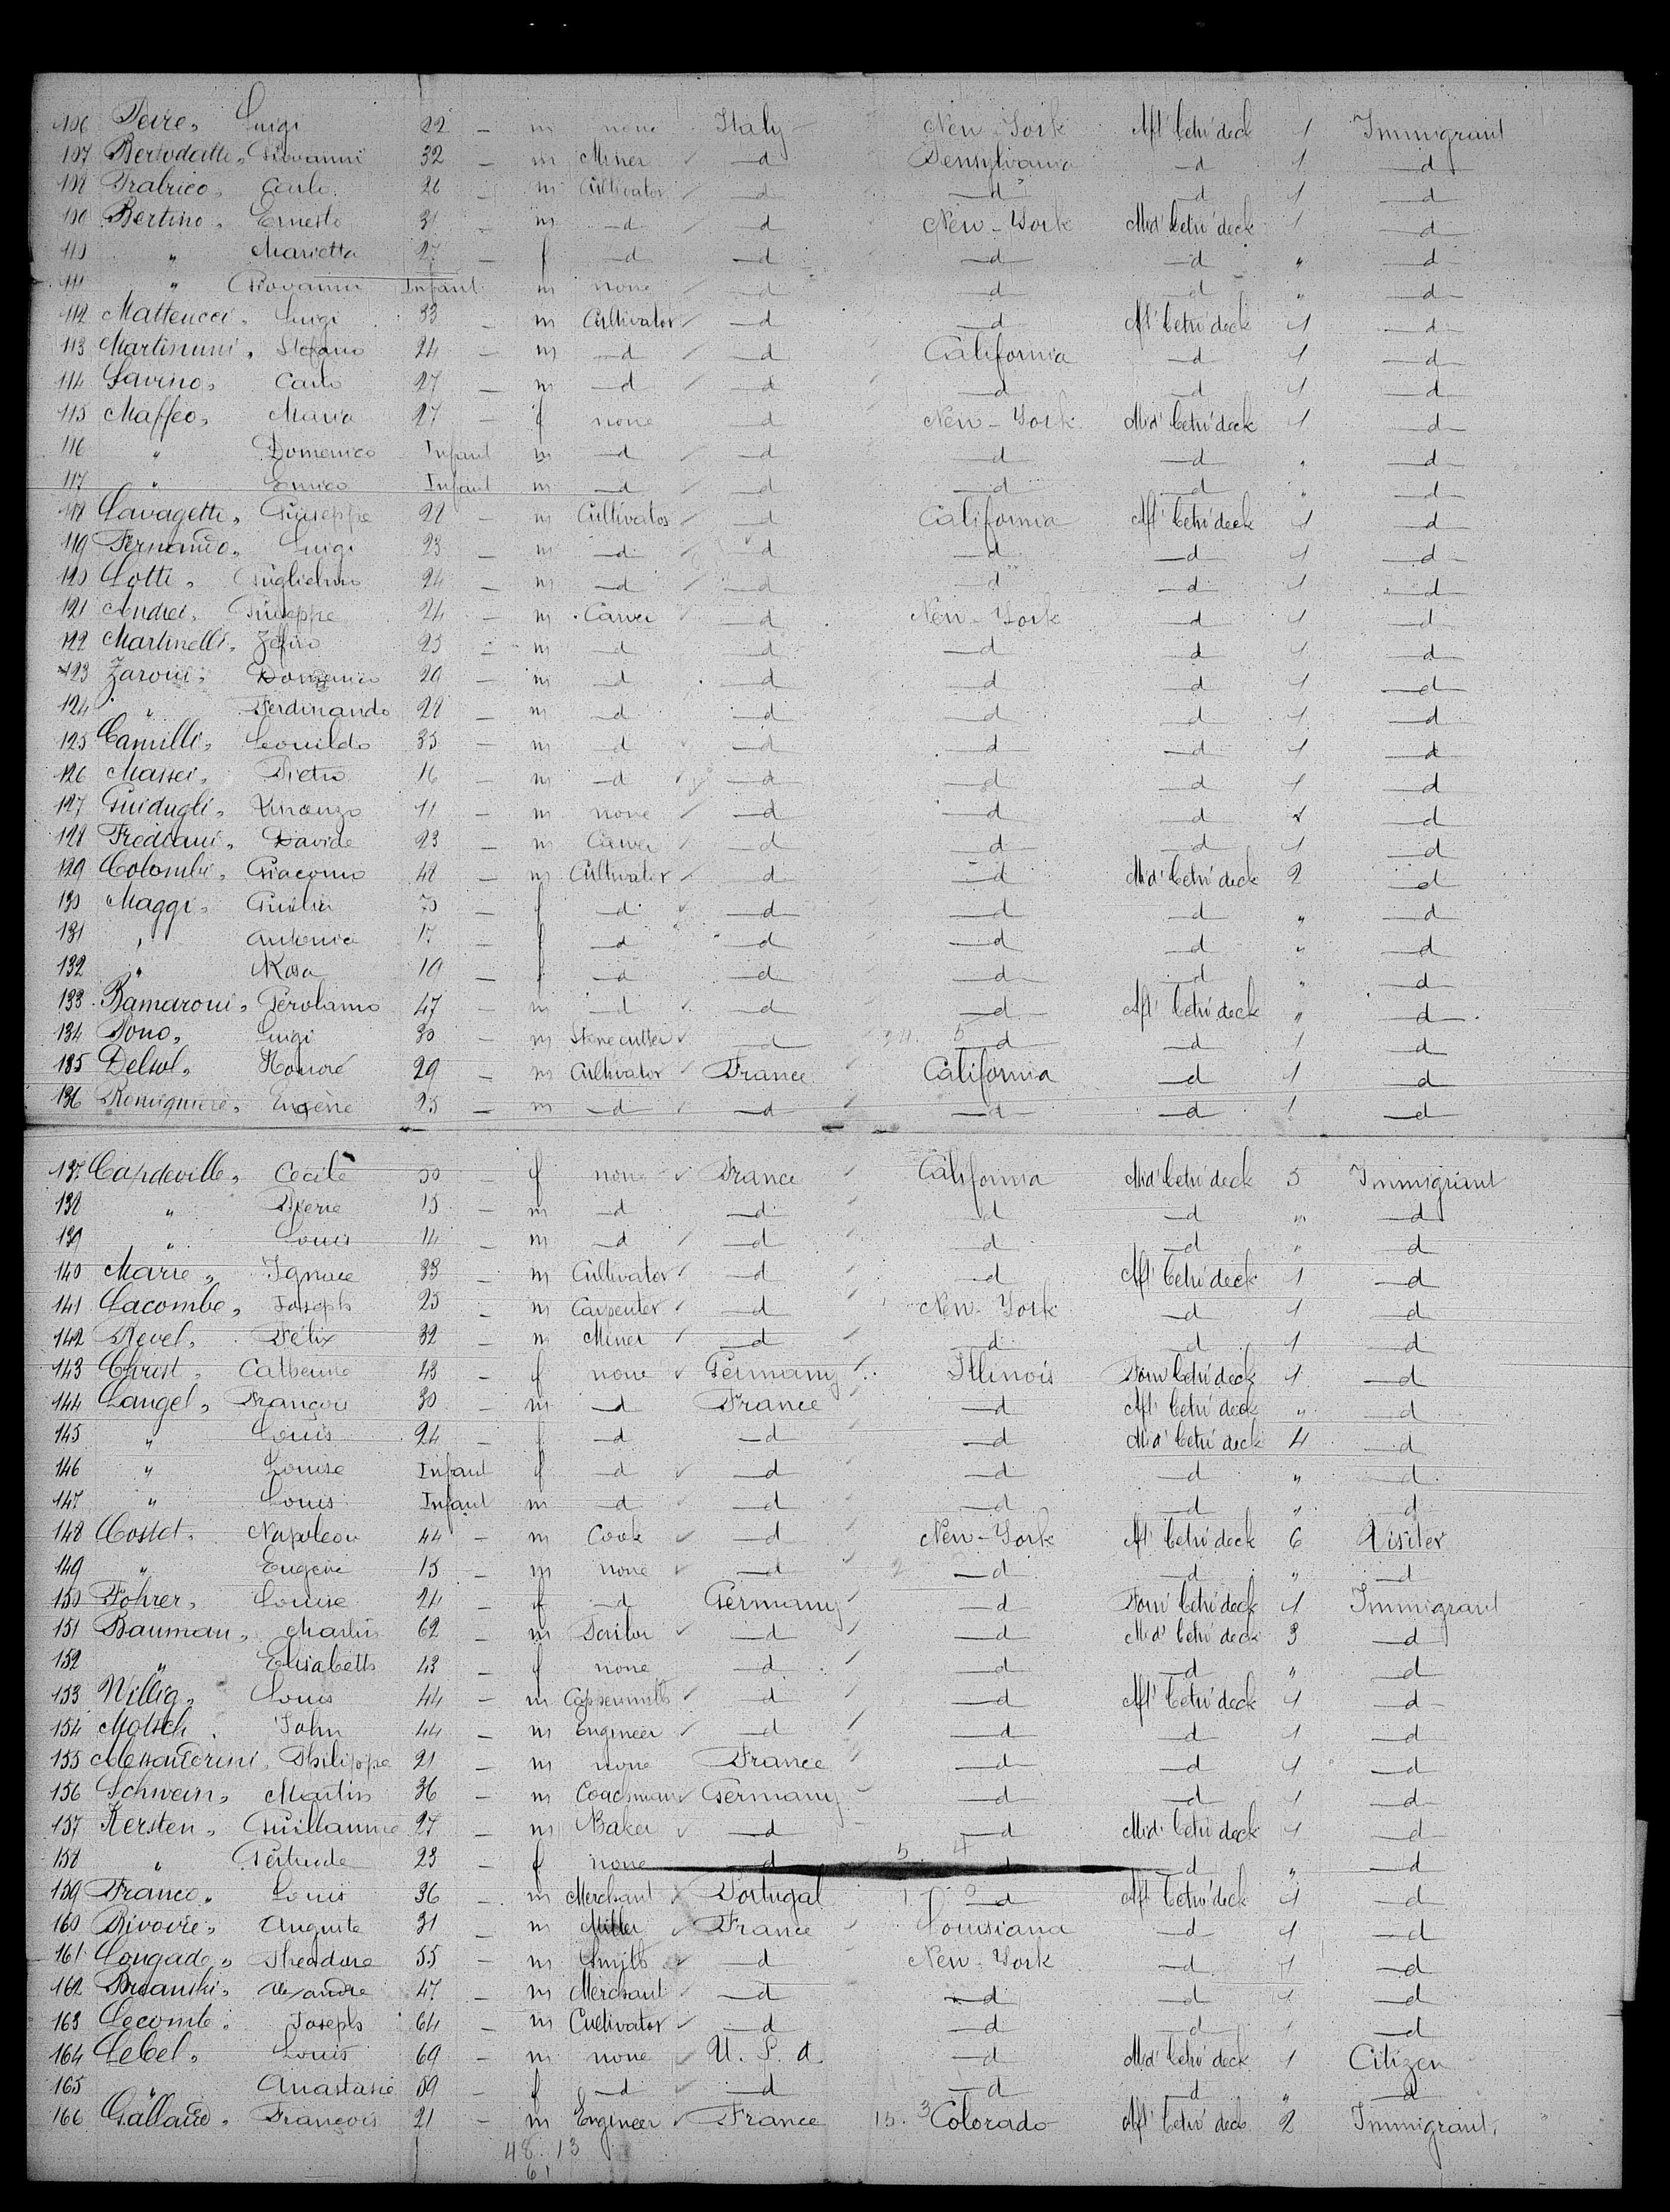 106 Peire, Luigi 22 — m none Italy New-York Aft betw deck 1 Immigrant
107 Bertodatti, Giovanni 32 — m Miner —d Pensylvania —d 1 —d
108 Fabrico, Carlo 26 m Cultivator —d —d —d 1 —d
109 Bertino, Ernesto 31 — m —d —d New-York Mid betw deck 1 —d
110 " Marietta 27 — f —d —d —d —d " —d
111 " Giovanni Infant m none —d —d —d " —d
112 Matteucci, Luigi 33 — m Cultivator —d —d Aft betw deck 1 —d
113 Martinuni, Stefano 24 — m —d —d California —d 1 —d
114 Savino, Carlo 27 — m —d —d —d —d 1 —d
115 Maffeo, Maria 27 — f none —d New-York Mid betw deck 1 —d
116 " Domenico Infant m —d —d —d —d " —d
117 " Enrico Infant m —d —d —d —d " —d
118 Lavagetti, Giuseppe 28 — m Cultivator —d California Aft betw deck 1 —d
119 Fernando, Luigi 23 — m —d —d —d —d 1 —d
120 Lotti, Guglielmo 24 — m —d —d —d —d 1 —d
121 Andrei, Giuseppe 24 — m Carver —d New-York —d 1 —d
122 Martinelli, Zefiro 25 — m —d —d —d —d 1 —d
123 Zaroni, Domenico 20 — m —d —d —d —d 1 —d
124 " Ferdinando 28 — m —d —d —d —d 1 —d
125 Camilli, Leonildo 35 — m —d —d —d —d 1 —d
126 Massei, Pietro 16 — m —d —d —d —d 1 —d
127 Guidugli, Vincenzo 11 — m none —d —d —d 1 —d
128 Frediani, Davide 23 — m Carver —d —d —d 1 —d
129 Colombi, Giacomo 48 — m Cultivator —d —d Mid betw deck 2 —d
130 Maggi, Giulia — f —d —d —d —d " —d
131 " Antonia 17 — f —d —d —d —d " —d
132 " Rosa 10 — f —d —d —d —d " —d
133 Bamaroni, Gerolamo 47 — m —d —d —d Aft betw deck " —d
134 Dono, Luigi 30 — m Stone cutter —d —d —d 1 —d
135 Delsol, Honoré 29 — m Cultivator France California —d 1 —d
136 Eugène 25 — m —d —d —d —d 1 —d
137 Capdeville, Cecile 50 — f none France California Mid betw deck 5 Immigrant
138 " Pierre 15 — m —d —d —d —d " —d
139 " Louis 14 — m —d —d —d —d " —d
140 Marie, Ignace 33 — m Cultivator —d —d Aft betw deck 1 —d
141 Lacombe, Joseph 25 — m Carpenter —d New-York —d 1 —d
142 Revel, Félix 32 — m Miner —d —d —d 1 —d
143 Christ, Catherine 43 — f none Germany Illinois Forw betw deck 1 —d
144 Langel, François 30 — m —d France —d Aft betw deck " —d
145 " Louis 24 — f —d —d —d Mid betw deck 4 —d
146 " Louise Infant f —d —d —d —d " —d
147 " Louis Infant m —d —d —d —d " —d
148 Costet, Napoleon 44 — m Cook —d New-York Aft betw deck 6 Visiter
149 " Eugène 15 — m none —d —d —d " —d
150 Fohrer, Louise 24 — f —d Germany —d Forw betw deck 1 Immigrant
151 Bauman, Martin 62 — m —d —d Mid betw deck 3 —d
152 " Elisabeth 43 — f none —d —d —d " —d
153 Willig, Louis 44 — m Coppersmith —d —d Aft betw deck 1 —d
154 Motsch, John 44 — m Engineer —d —d —d 1 —d
155 Alessandrini, Philippe 21 — m none France —d —d 1 —d
156 Schwein, Martin 36 — m Coachman Germany —d —d 1 —d
157 Kersten, Guillaume 27 — m Baker —d —d Mid betw deck 1 —d
158 " Gertrude 23 — f none —d —d —d " —d
159 Franco, Louis 36 — m Merchant Portugal —d Aft betw deck 1 —d
160 Rivoire, Auguste 31 — m Miller France Louisiana —d 1 —d
161 Lougade, Theodore 55 — m Smith —d New-York —d 1 —d
162 Alexandre 47 — m Merchant —d —d —d 1 —d
163 Lecomte, Joseph 64 — m Cultivator —d —d —d 1 —d
164 Lebel, Louis 69 — m none U. S. A. —d Mid betw deck 1 Citizen
165 " Anastasie 59 — f —d —d —d —d " —d
166 Galland, François 21 — m Engineer France Colorado Aft betw deck 2 Immigrant
48. 13
61